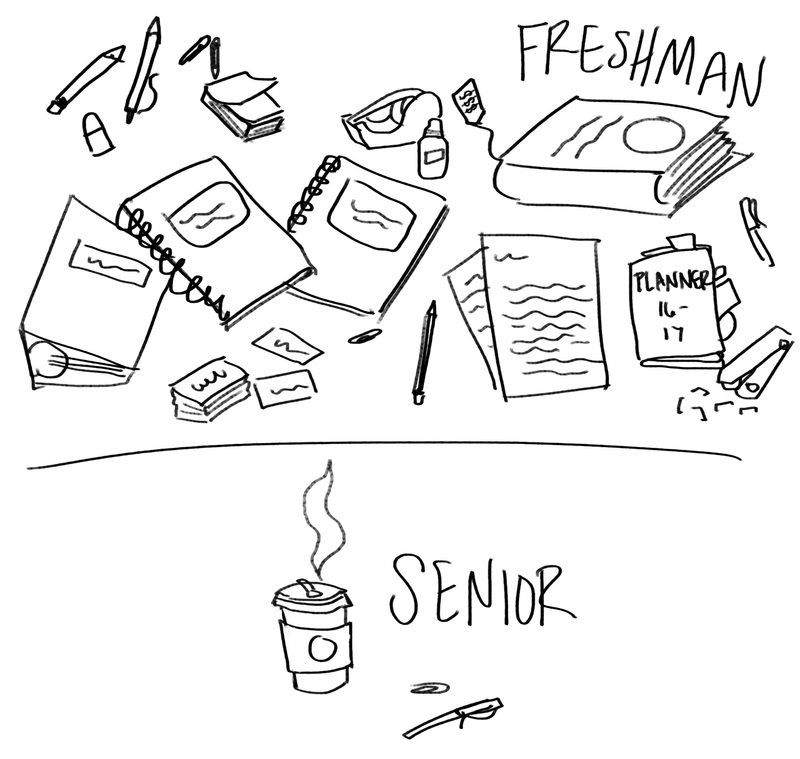 FRESHMAN
$$$
PLANNER
16-
17
SENIOR